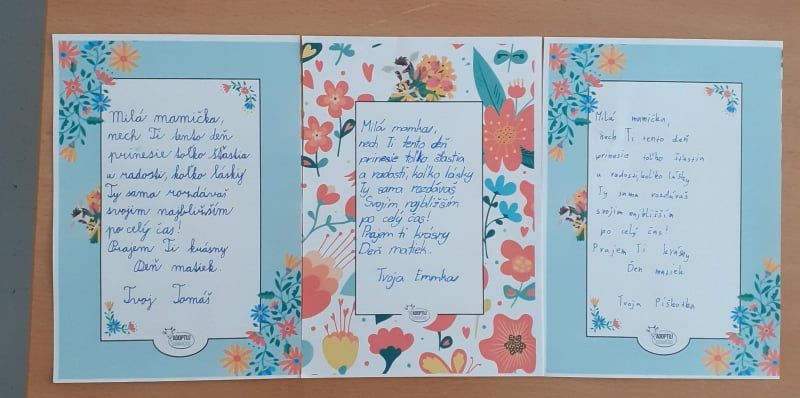 Milá mamička,
nech Ti tento deň
prinesie toľko šťastia
a radosti, koľko lásky
Ty sama rozdávaš
svojim najbližším
po celý čas!
Prajem Ti krásny
Deň matiek.
Tvoj Tomáš
ADOPTUJ
Milá mamka,
nech Ti tento deň
prinesie toľko šťastia
a radosti, koľko lásky
Ty sama rozdávaš
Svojim najbližším
po celý čas!
Prajem ti krásny
Deň matiek.
Tvoja Emmka
ADOPTUJ
Milá mamička,
nech Ti tento deň
prinesie toľko šťastia
a radosti, koľko lásky
Ty sama rozdávaš
svojim najbližším
po celý čas!
Prajem Ti krásky
Den matiek
Tvoja Piškotka
ADOPTUJ